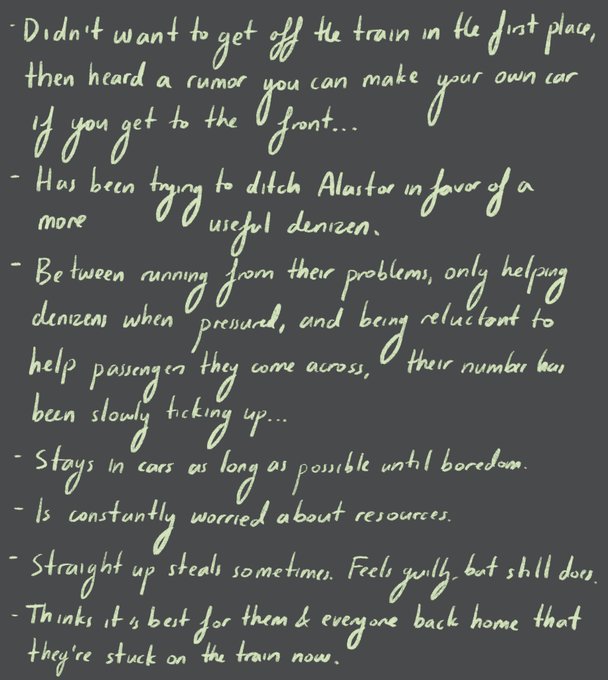 - Didn't want to get off the train in the first place,
then heard a rumor you can make your own car
if you get to the front...
- Has been trying to ditch Alastor in favor of a
more useful denizen.
- Between running from their problems, only helping
denizens when pressured, and being reluctant to
help passengers they come across, their number has
been slowly ticking up...
- Stays in cars as long as possible until boredom.
- Is constantly worried about resources.
- Straight up steals sometimes. Feels guilty, but still does.
- Thinks it is best for them & everyone back home that
they're stuck on the train now.